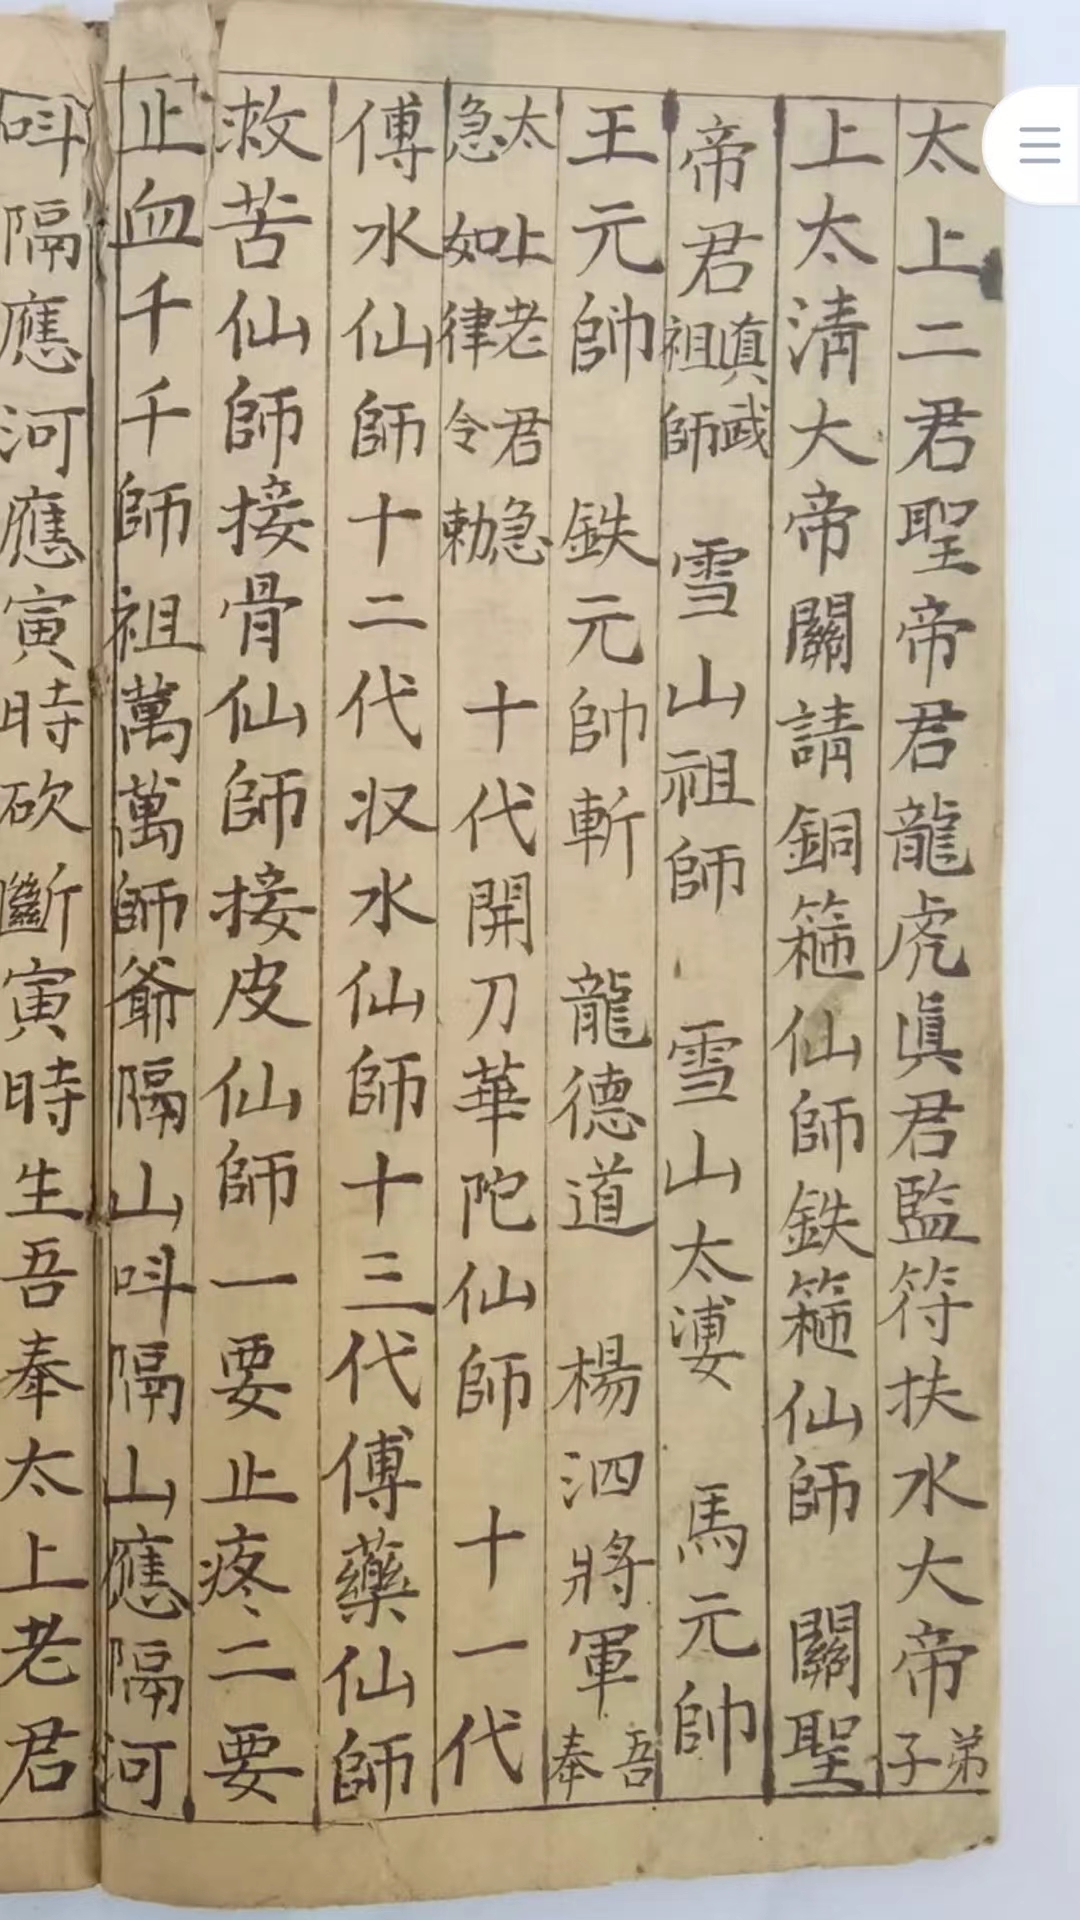 太上二君聖帝君龍虎眞君監符扶水大帝弟子
上太清大帝關請銅箍仙師鉄箍仙師　關聖
帝君眞武祖師　雪山祖師　雪山太婆　馬元帥
王元帥　鉄元帥斬　龍德道　楊泗將軍吾奉
太上老君急急如律令勅　十代開刀華陀仙師　十一代
傅水仙師十二代収水仙師十三代傅藥仙師
救苦仙師接骨仙師接皮仙師一要止疼二要
止血千千師祖萬萬師爺隔山呌隔山應隔河
呌隔應河應寅時砍斷寅時生吾奉太上老君